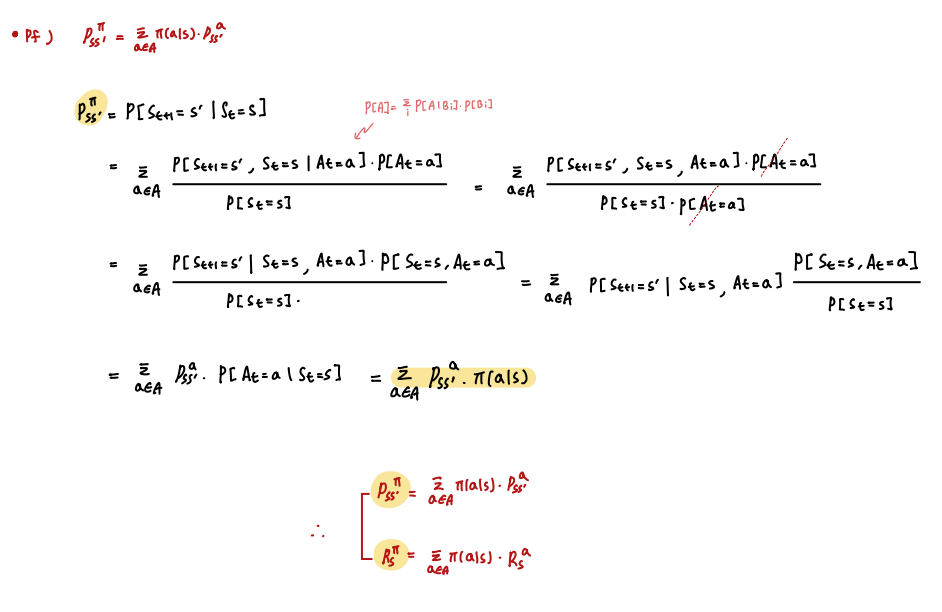 • Pf ) P_{ss'}^π = Σ_{a∈A} π(a|s) · P_{ss'}^a
P_{ss'}^π = P[S_{t+1}=s' | S_t=s]
P[A] = Σ_i P[A|B_i] · P[B_i]
= Σ_{a∈A} P[S_{t+1}=s', S_t=s | A_t=a] · P[A_t=a] / P[S_t=s] = Σ_{a∈A} P[S_{t+1}=s', S_t=s, A_t=a] · P[A_t=a] / P[S_t=s] · P[A_t=a]
= Σ_{a∈A} P[S_{t+1}=s' | S_t=s, A_t=a] · P[S_t=s, A_t=a] / P[S_t=s] · = Σ_{a∈A} P[S_{t+1}=s' | S_t=s, A_t=a] P[S_t=s, A_t=a] / P[S_t=s]
= Σ_{a∈A} P_{ss'}^a · P[A_t=a | S_t=s] = Σ_{a∈A} P_{ss'}^a · π(a|s)
P_{ss'}^π = Σ_{a∈A} π(a|s) · P_{ss'}^a
∴
R_s^π = Σ_{a∈A} π(a|s) · R_s^a